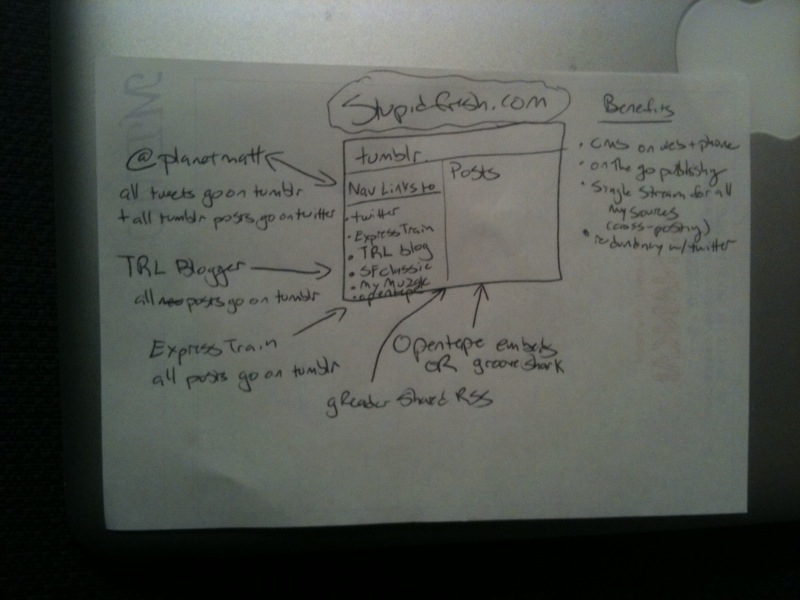 Stupidfresh.com
@planetmatt
all tweets go on tumblr
+ all tumblr posts go on twitter
TRL Blogger
all posts go on tumblr
Express Train
all posts go on tumblr
tumblr.
Nav Links to
• twitter
• ExpressTrain
• TRL blog
• SFclassic
• my Muzak
• opentape
Posts
Opentape embeds
OR grooveshark
gReader Shared RSS
Benefits
• CMS on web + phone
• on the go publishing
• Single stream for all
my sources
(cross-posting)
• redundancy w/ twitter